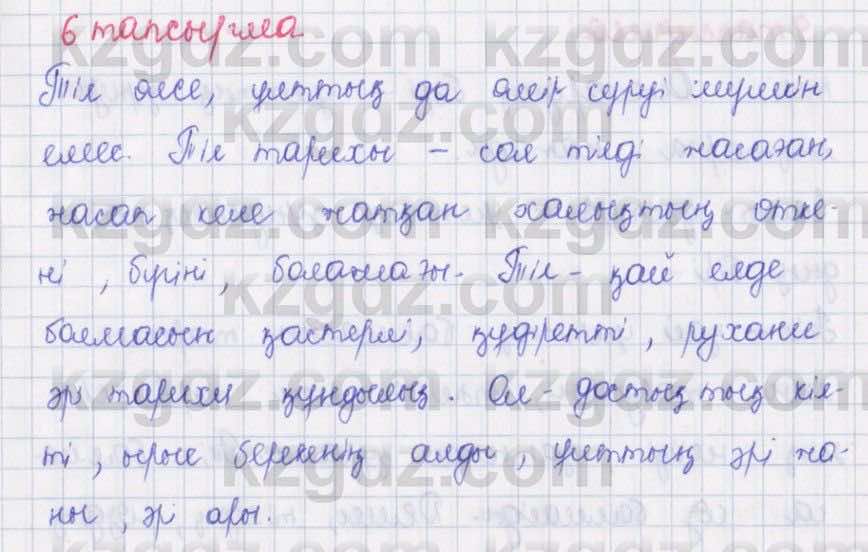 6 тапсырма
Тіл өлсе, ұлттың да өмір сүруі мүмкін
емес. Тіл тарихы – сол тілді жасаған,
жасап келе жатқан халықтың өтке-
ні, бүгіні, болашағы. Тіл – қай елде
болмасын қастерлі, құдіретті, рухани
әрі тарихи құндылық. Ол – достықтың кіл-
ті, ырыс берекенің алды, ұлттың әрі жа-
ны, әрі ары.
kzgdz.com